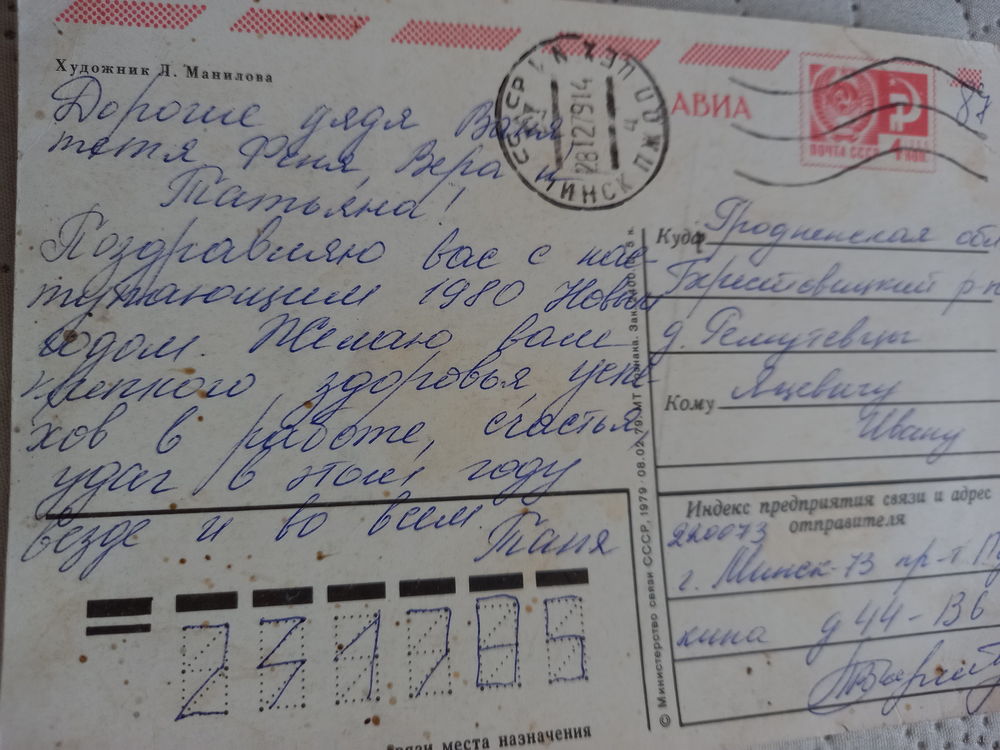 Художник Л. Манилова
Дорогие дядя Ваня
тетя Феня, Вера и
Татьяна!
Поздравляю вас с нас-
тупающим 1980 Новым
годом. Желаю вам
крепкого здоровья успе-
хов в работе, счастья
удач в этом году
везде и во всем.
Таня
СССР
МИНСК ПЖДП
28127914
АВИА
ПОЧТА СССР
4 коп.
87
Куда Гродненская обл
Берестовицкий р-н
д.
Кому Яцевичу
Ивану
Индекс предприятия связи и адрес
отправителя
220073
г. Минск-73 пр-т П
кина д 44-136
231785
связи места назначения
© Министерство связи СССР, 1979 · 08.02.79